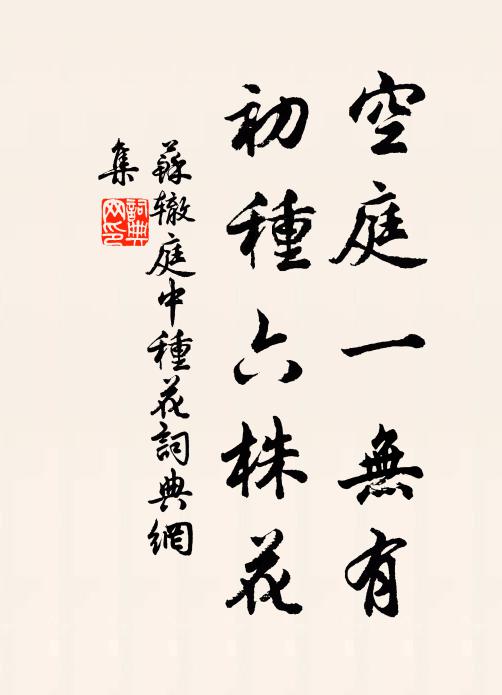 空庭一無有
初種六株花
蘇辙庭中種花詞典網
集
詞典
网印